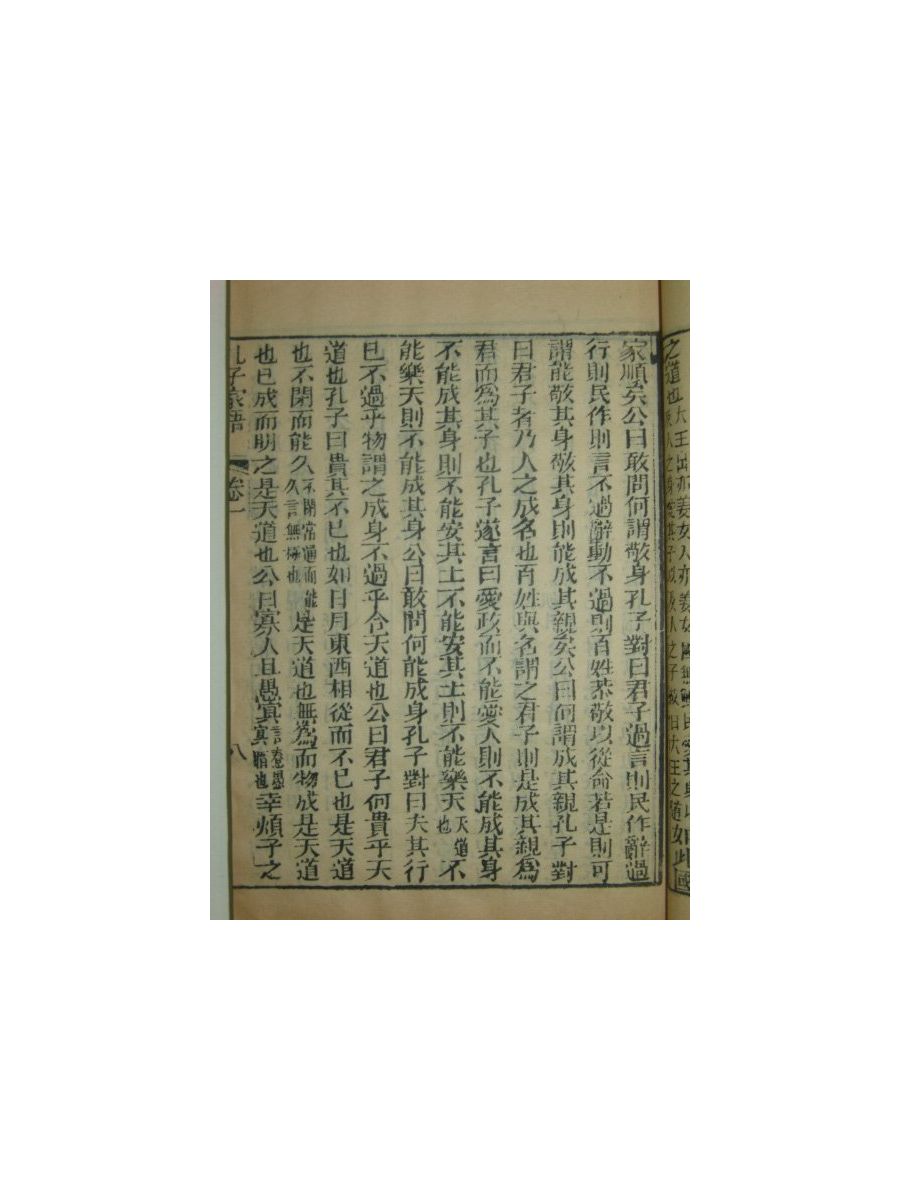 之道也
家順矣公曰敢問何謂敬身孔子對曰君子過言則民作辭過
行則民作則言不過辭動不過則百姓恭敬以從命若是則可
謂能敬其身敬其身則能成其親矣公曰何謂成其親孔子對
曰君子者乃人之成名也百姓與名謂之君子則是成其親為
君而為其子也孔子遂言曰愛政而不能愛人則不能成其身
不能成其身則不能安其土不能安其土則不能樂天天道也不
能樂天則不能成其身公曰敢問何能成身孔子對曰夫其行
已不過乎物謂之成身不過乎合天道也公曰君子何貴乎天
道也孔子曰貴其不已也如日月東西相從而不已也是天道
也不閉而能久不閉常通而能久言無極也是天道也無為而物成是天道
也已成而明之是天道也公曰寡人且愚冥言惷愚冥暗也幸煩子之
孔子家語 卷一 八